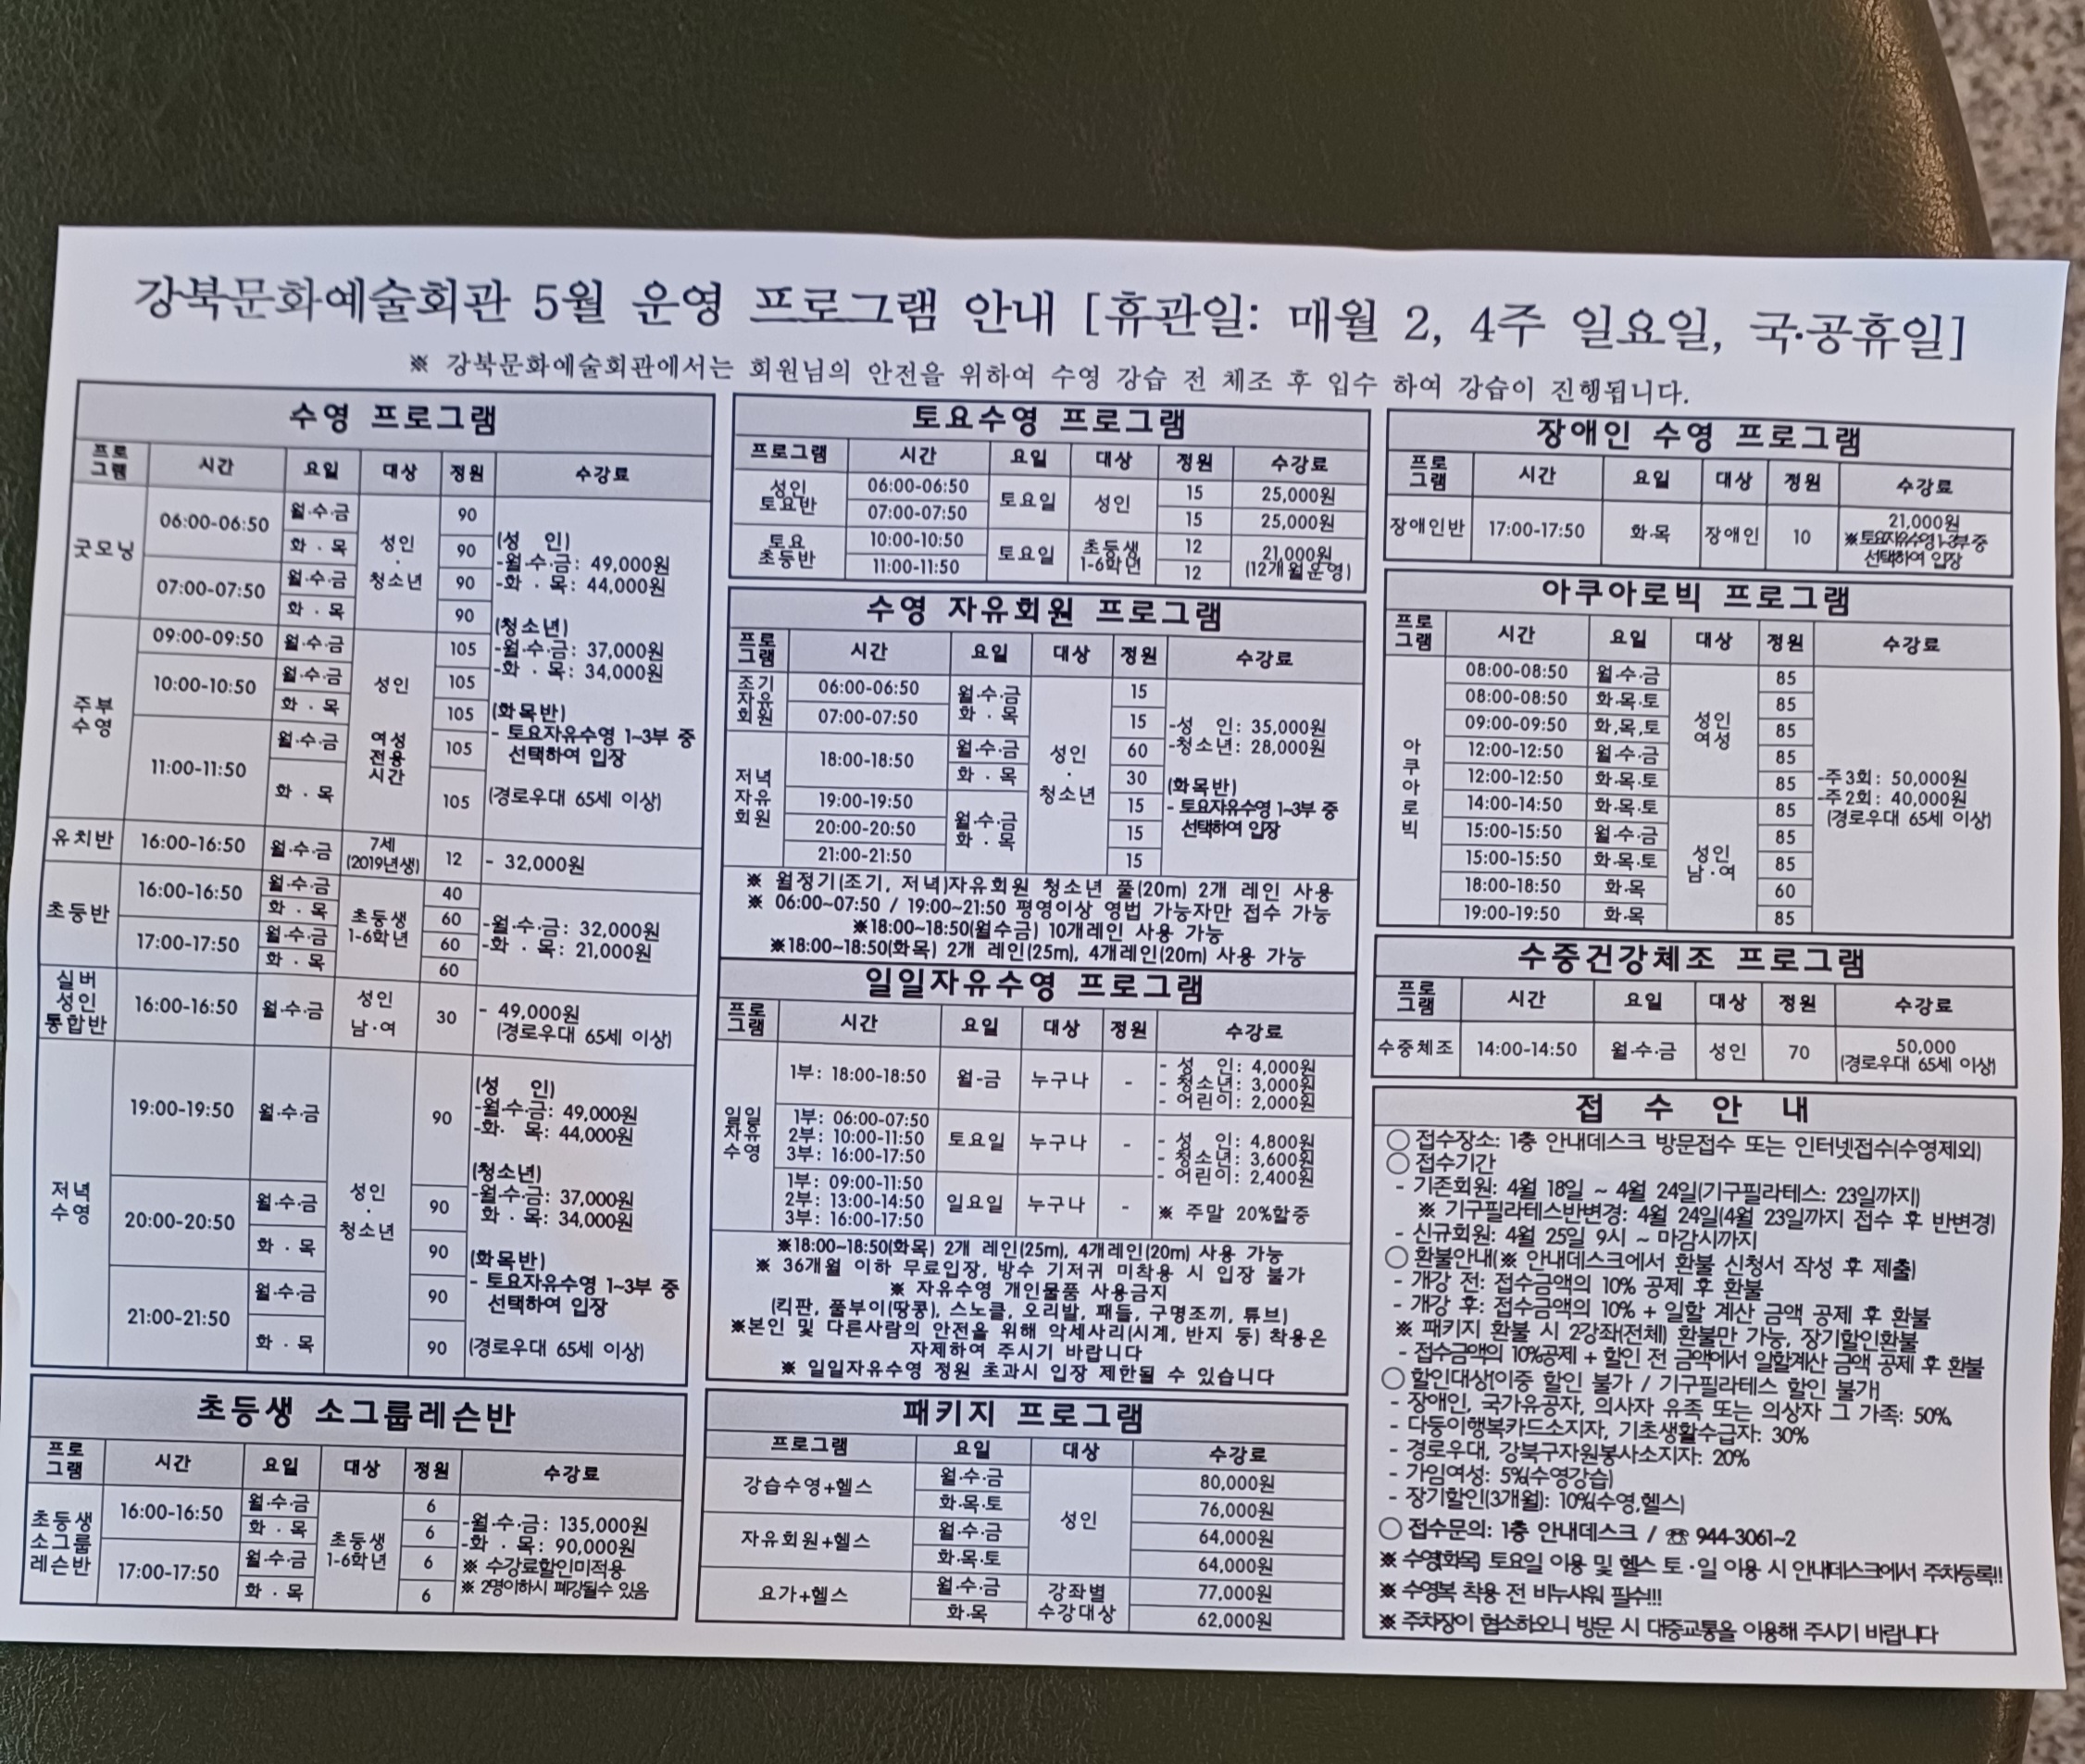 강북문화예술회관 5월 운영 프로그램 안내 [휴관일: 매월 2, 4주 일요일, 국·공휴일]
※ 강북문화예술회관에서는 회원님의 안전을 위하여 수영 강습 전 체조 후 입수 하여 강습이 진행됩니다.
수영 프로그램
프로그램 시간 요일 대상 정원 수강료
굿모닝 06:00-06:50 월·수·금 성인·청소년 90
화 · 목 90
07:00-07:50 월·수·금 90
화 · 목 90
(성 인)
-월·수·금: 49,000원
-화 · 목: 44,000원
(청소년)
-월·수·금: 37,000원
-화 · 목: 34,000원
(화목반)
- 토요자유수영 1~3부 중
선택하여 입장
(경로우대 65세 이상)
주부수영 09:00-09:50 월·수·금 성인 여성전용시간 105
10:00-10:50 월·수·금 105
화 · 목 105
11:00-11:50 월·수·금 105
화 · 목 105
유치반 16:00-16:50 월·수·금 7세(2019년생) 12 - 32,000원
초등반 16:00-16:50 월·수·금 초등생 1-6학년 40
화 · 목 60
17:00-17:50 월·수·금 60
화 · 목 60
-월·수·금: 32,000원
-화 · 목: 21,000원
실버성인통합반 16:00-16:50 월·수·금 성인 남·여 30 - 49,000원
(경로우대 65세 이상)
저녁수영 19:00-19:50 월·수·금 성인·청소년 90
20:00-20:50 월·수·금 90
화 · 목 90
21:00-21:50 월·수·금 90
화 · 목 90
(성 인)
-월·수·금: 49,000원
-화· 목: 44,000원
(청소년)
-월·수·금: 37,000원
화 · 목: 34,000원
(화목반)
- 토요자유수영 1~3부 중
선택하여 입장
(경로우대 65세 이상)
초등생 소그룹레슨반
프로그램 시간 요일 대상 정원 수강료
초등생소그룹레슨반 16:00-16:50 월·수·금 초등생 1-6학년 6
화 · 목 6
17:00-17:50 월·수·금 6
화 · 목 6
-월·수·금: 135,000원
-화 · 목: 90,000원
※ 수강료할인미적용
※ 2명이하시 폐강될수 있음
토요수영 프로그램
프로그램 시간 요일 대상 정원 수강료
성인토요반 06:00-06:50 토요일 성인 15 25,000원
07:00-07:50 15 25,000원
토요초등반 10:00-10:50 토요일 초등생 1-6학년 12 21,000원
11:00-11:50 12 (12개월운영)
수영 자유회원 프로그램
프로그램 시간 요일 대상 정원 수강료
조기자유회원 06:00-06:50 월·수·금 화 · 목 성인·청소년 15
07:00-07:50 15
저녁자유회원 18:00-18:50 월·수·금 60
화 · 목 30
19:00-19:50 월·수·금 화 · 목 15
20:00-20:50 15
21:00-21:50 15
-성 인: 35,000원
-청소년: 28,000원
(화목반)
- 토요자유수영 1~3부 중
선택하여 입장
※ 월정기(조기, 저녁)자유회원 청소년 풀(20m) 2개 레인 사용
※ 06:00~07:50 / 19:00~21:50 평영이상 영법 가능자만 접수 가능
※18:00~18:50(월수금) 10개레인 사용 가능
※18:00~18:50(화목) 2개 레인(25m), 4개레인(20m) 사용 가능
일일자유수영 프로그램
프로그램 시간 요일 대상 정원 수강료
일일자유수영 1부: 18:00-18:50 월-금 누구나 -
- 성 인: 4,000원
- 청소년: 3,000원
- 어린이: 2,000원
1부: 06:00-07:50
2부: 10:00-11:50 토요일 누구나 -
3부: 16:00-17:50
- 성 인: 4,800원
- 청소년: 3,600원
- 어린이: 2,400원
1부: 09:00-11:50
2부: 13:00-14:50 일요일 누구나 -
3부: 16:00-17:50
※ 주말 20%할증
※18:00~18:50(화목) 2개 레인(25m), 4개레인(20m) 사용 가능
※ 36개월 이하 무료입장, 방수 기저귀 미착용 시 입장 불가
※ 자유수영 개인물품 사용금지
(킥판, 풀부이(땅콩), 스노클, 오리발, 패들, 구명조끼, 튜브)
※본인 및 다른사람의 안전을 위해 악세사리(시계, 반지 등) 착용은
자제하여 주시기 바랍니다
※ 일일자유수영 정원 초과시 입장 제한될 수 있습니다
패키지 프로그램
프로그램 요일 대상 수강료
강습수영+헬스 월·수·금 성인 80,000원
화·목·토 76,000원
자유회원+헬스 월·수·금 64,000원
화·목·토 64,000원
요가+헬스 월·수·금 강좌별 수강대상 77,000원
화·목 62,000원
장애인 수영 프로그램
프로그램 시간 요일 대상 정원 수강료
장애인반 17:00-17:50 화·목 장애인 10 21,000원
※토요자유수영1~3부 중
선택하여 입장
아쿠아로빅 프로그램
프로그램 시간 요일 대상 정원 수강료
아쿠아로빅 08:00-08:50 월·수·금 성인 여성 85
08:00-08:50 화·목·토 85
09:00-09:50 화,목,토 85
12:00-12:50 월·수·금 85
12:00-12:50 화·목·토 85
14:00-14:50 화·목·토 성인 남·여 85
15:00-15:50 월·수·금 85
15:00-15:50 화·목·토 85
18:00-18:50 화·목 60
19:00-19:50 화·목 85
-주 3회: 50,000원
-주 2회: 40,000원
(경로우대 65세 이상)
수중건강체조 프로그램
프로그램 시간 요일 대상 정원 수강료
수중체조 14:00-14:50 월·수·금 성인 70 50,000
(경로우대 65세 이상)
접 수 안 내
○ 접수장소: 1층 안내데스크 방문접수 또는 인터넷접수(수영제외)
○ 접수기간
- 기존회원: 4월 18일 ~ 4월 24일(기구필라테스: 23일까지)
※ 기구필라테스반변경: 4월 24일(4월 23일까지 접수 후 반변경)
- 신규회원: 4월 25일 9시 ~ 마감시까지
○ 환불안내(※ 안내데스크에서 환불 신청서 작성 후 제출)
- 개강 전: 접수금액의 10% 공제 후 환불
- 개강 후: 접수금액의 10% + 일할 계산 금액 공제 후 환불
※ 패키지 환불 시 2강좌(전체) 환불만 가능, 장기할인환불
- 접수금액의 10%공제 + 할인 전 금액에서 일할계산 금액 공제 후 환불
○ 할인대상[이중 할인 불가 / 기구필라테스 할인 불가]
- 장애인, 국가유공자, 의사자 유족 또는 의상자 그 가족: 50%,
- 다둥이행복카드소지자, 기초생활수급자: 30%
- 경로우대, 강북구자원봉사소지자: 20%
- 가임여성: 5%(수영강습)
- 장기할인(3개월): 10%(수영,헬스)
○ 접수문의: 1층 안내데스크 / ☏ 944-3061~2
※ 수영(화목) 토요일 이용 및 헬스 토·일 이용 시 안내데스크에서 주차등록!!
※ 수영복 착용 전 비누샤워 필수!!!
※ 주차장이 협소하오니 방문 시 대중교통을 이용해 주시기 바랍니다